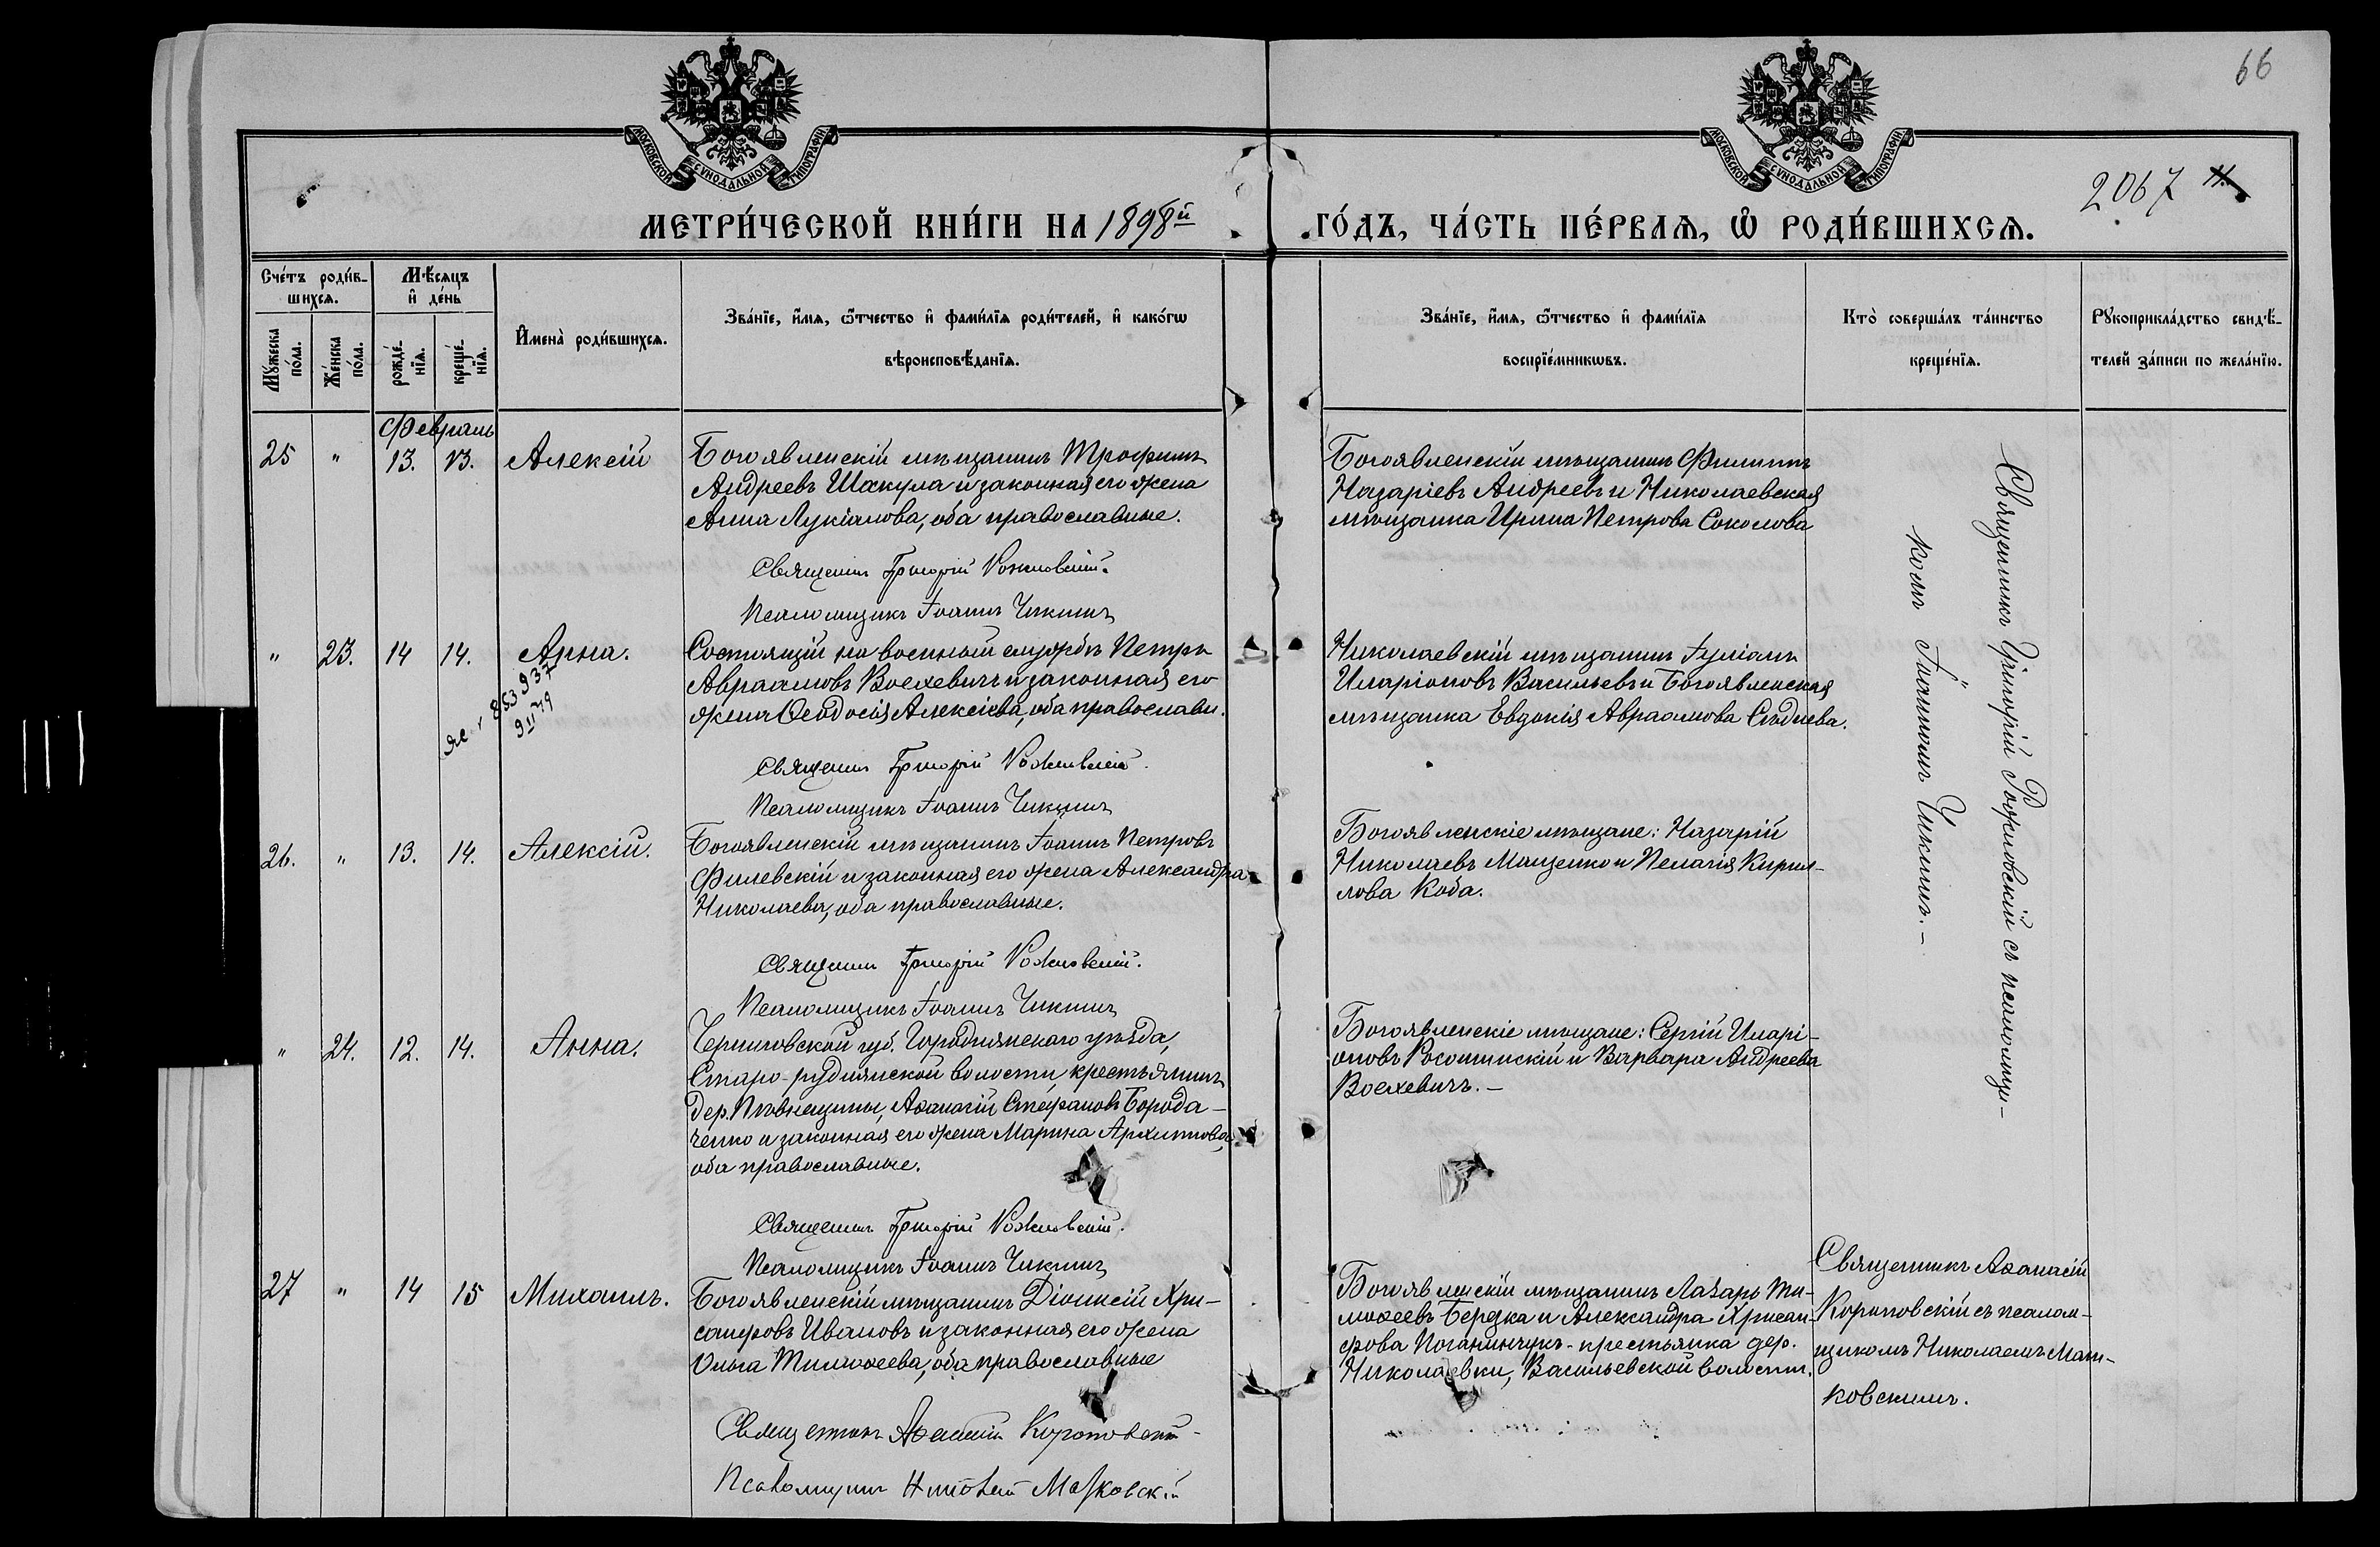 66
МОСКОВСКОЙ СУНОДАЛЬНОЙ ТИПОГРАФІИ
МОСКОВСКОЙ СУНОДАЛЬНОЙ ТИПОГРАФІИ
2067
МЕТРИ́ЧЕСКОЙ КНИ́ГИ НА 1898й ГО́ДЪ, ЧА́СТЬ ПЕ́РВАѦ, Ѡ҆ РОДИ́ВШИХСѦ.
Сче́тъ роди́в-
шихсѧ.
Мꙋ́жеска по́ла.
Же́нска по́ла.
Мѣ́сѧцъ
и҆ де́нь
рожде́-
нїѧ.
креще́-
нїѧ.
И҆мена̀ роди́вшихсѧ.
Зва́нїе, и҆́мѧ, ѻ҆́тчество и҆ фами́лїѧ роди́телей, и҆ како́гѡ
вѣроисповѣ́данїѧ.
Зва́нїе, и҆́мѧ, ѻ҆́тчество и҆ фами́лїѧ
воспрїе́мникѡвъ.
Кто̀ соверша́лъ та́инство
креще́нїѧ.
Рꙋкоприкла́дство свидѣ́-
телей за́писи по жела́нїю.
Февраль
25 " 13. 13. Алексій
Богоявленскій мѣщанинъ Трофимъ
Андреевъ Шакула и законная его жена
Анна Лукіанова, оба православные.
Священникъ Григорій Рожновскій.
Псаломщикъ Іоаннъ Чикшинъ
Богоявленскій мѣщанинъ Филиппъ
Назаріевъ Андреевъ и Николаевская
мѣщанка Ирина Петрова Соколова
Священникъ Григорій Рожновскій съ псаломщи-
комъ Іоанномъ Чикшинъ.-
" 23. 14 14. Анна.
853937
9 II 79
Состоящій на военной службѣ Петръ
Авраамовъ Воехевичъ и законная его
жена Ѳеодосія Алексіева, оба православн.
Священникъ Григорій Рожновскій.
Псаломщикъ Іоаннъ Чикшинъ
Николаевскій мѣщанинъ Іуліанъ
Иларіоновъ Васильевъ и Богоявленская
мѣщанка Евдокія Авраамова Сѣднева.
26. " 13. 14. Алексій.
Богоявленскій мѣщанинъ Іоаннъ Петровъ
Филевскій и законная его жена Александра
Николаева, оба православные.
Священникъ Григорій Рожновскій.
Псаломщикъ Іоаннъ Чикшинъ
Богоявленскіе мѣщане: Назарій
Николаевъ Мащенко и Пелагія Кирил-
лова Коба.
" 24. 12. 14. Анна.
Черниговской губ. Городнянскаго уѣзда,
Старо-руднянской волости крестьянинъ
дер. Пѣвнещины, Аѳанасій Стефановъ Борода-
ченко и законная его жена Марина Архиппова,
оба православные.
Священникъ Григорій Рожновскій.
Псаломщикъ Іоаннъ Чикшинъ
Богоявленскіе мѣщане: Сергій Иларі-
оновъ Росошинскій и Варвара Андреева
Воехевичъ.-
27 " 14 15 Михаилъ.
Богоявленскій мѣщанинъ Діонисій Хри-
санфовъ Ивановъ и законная его жена
Ольга Тимоѳеева, оба православные
Священникъ Аѳанасій Короповскій
Псаломщикъ Николай Маньковскій
Богоявленскій мѣщанинъ Лазарь Ти-
моѳеевъ Бердка и Александра Хрисан-
фова Поганинчукъ- крестьянка дер.
Николаевки, Васильевской волости.
Священникъ Аѳанасій
Короповскій съ псалом-
щикомъ Николаемъ Мань-
ковскимъ.